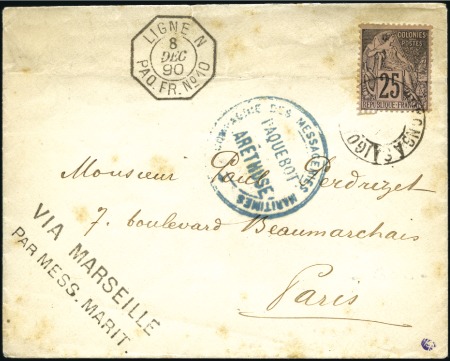 LIGNE N
8
DEC
90
PAQ. FR. No 10
COLONIES
POSTES
25
RÉPUBLIQUE FRANÇAISE
COMPAGNIE DES MESSAGERIES MARITIMES
PAQUEBOT
ARÉTHUSE
Monsieur Paul Perdrizet
7, boulevard Beaumarchais
Paris
VIA MARSEILLE
PAR MESS. MARIT